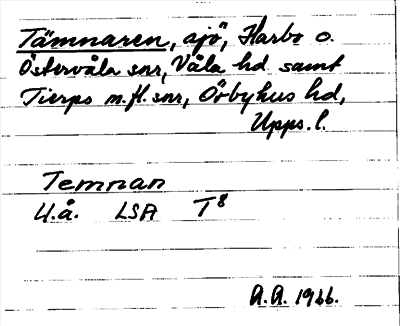 Tämnaren, sjö, Harbo o.
Östervåla snr, Våla hd samt
Tierps m.fl. snr, Örbyhus hd,
Upps. l.
Temnan
U.å. LSA T8
A.A. 1966.